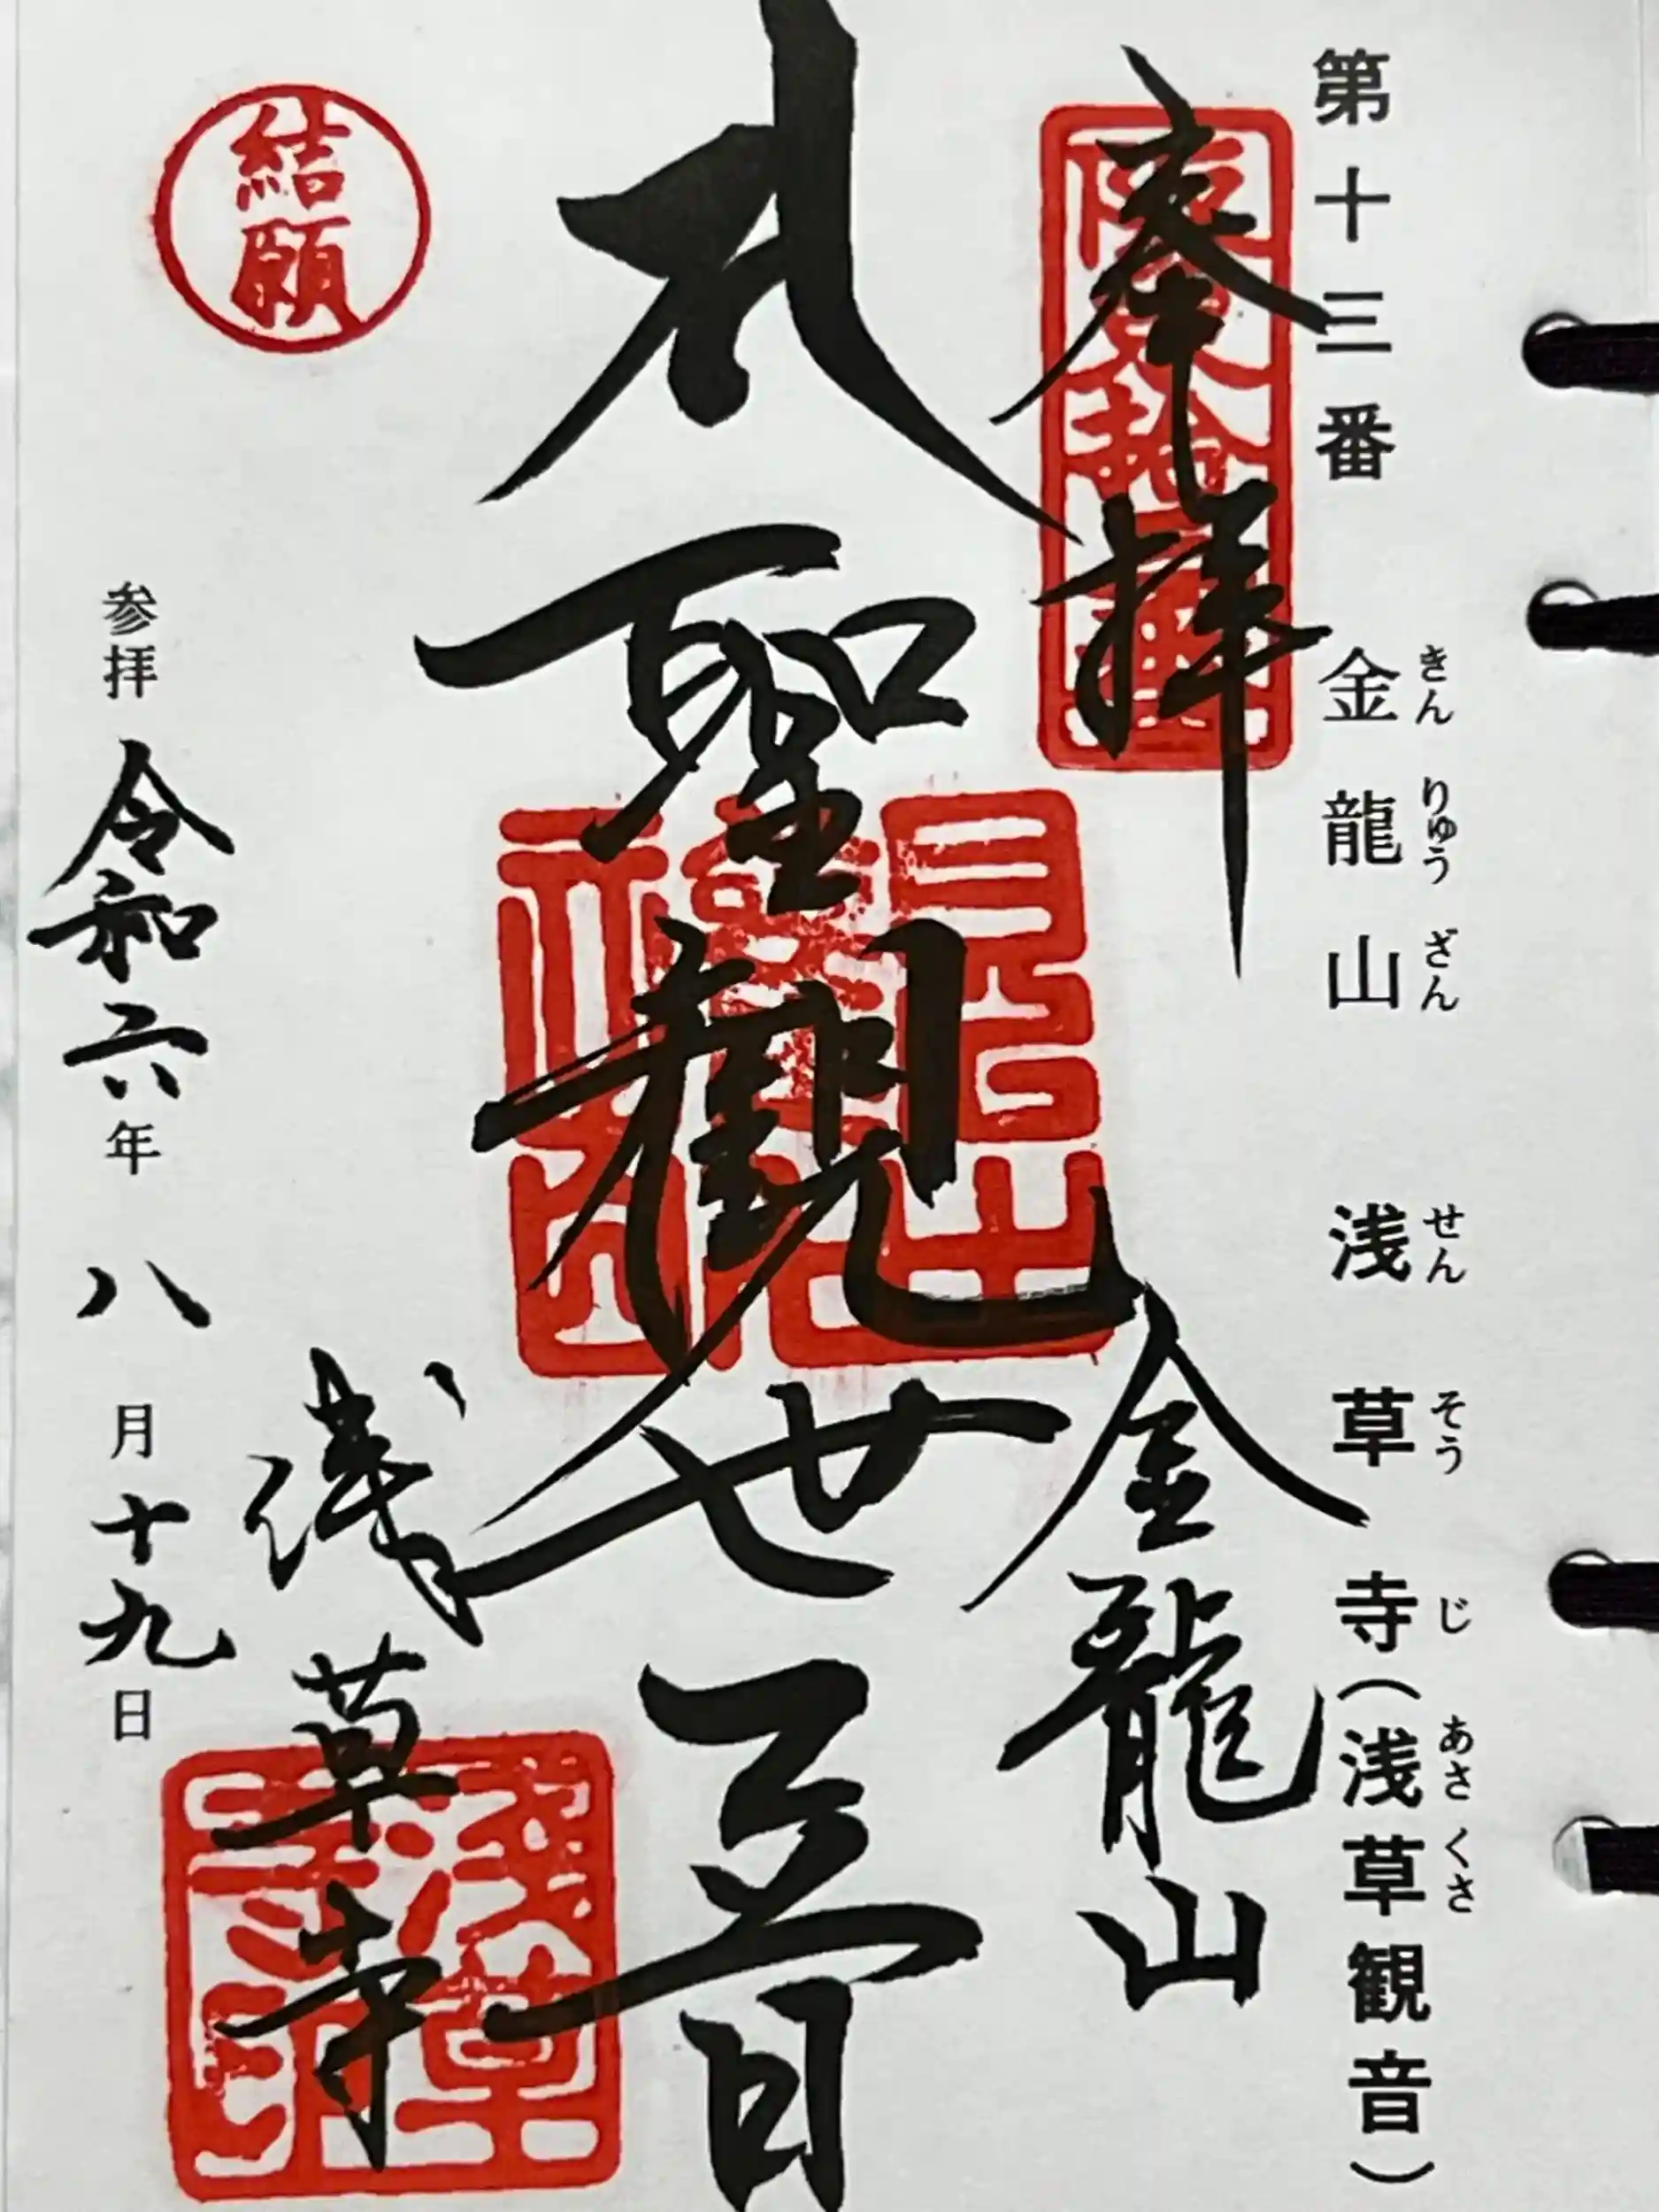 第十三番 金龍山 浅草寺(浅草観音)
きん りゅう ざん せん そう じ あさ くさ
奉拝
金龍山
大聖観世音
浅草寺
結願
参拝 令和六年 八月十九日
浅草寺印